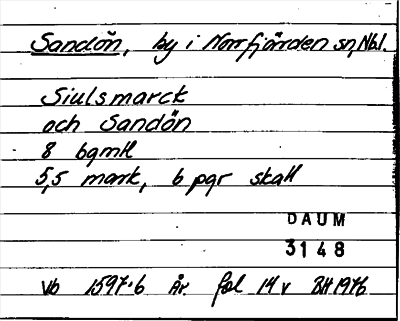 Sandön, by i Norrfjärden sn, Nbl.
Siulsmarck
och Sandön
8 bqmll
5,5 mark, 6 pqr skatt
DAUM
3148
Vb 1597:6 År fol 14 v BH 1976